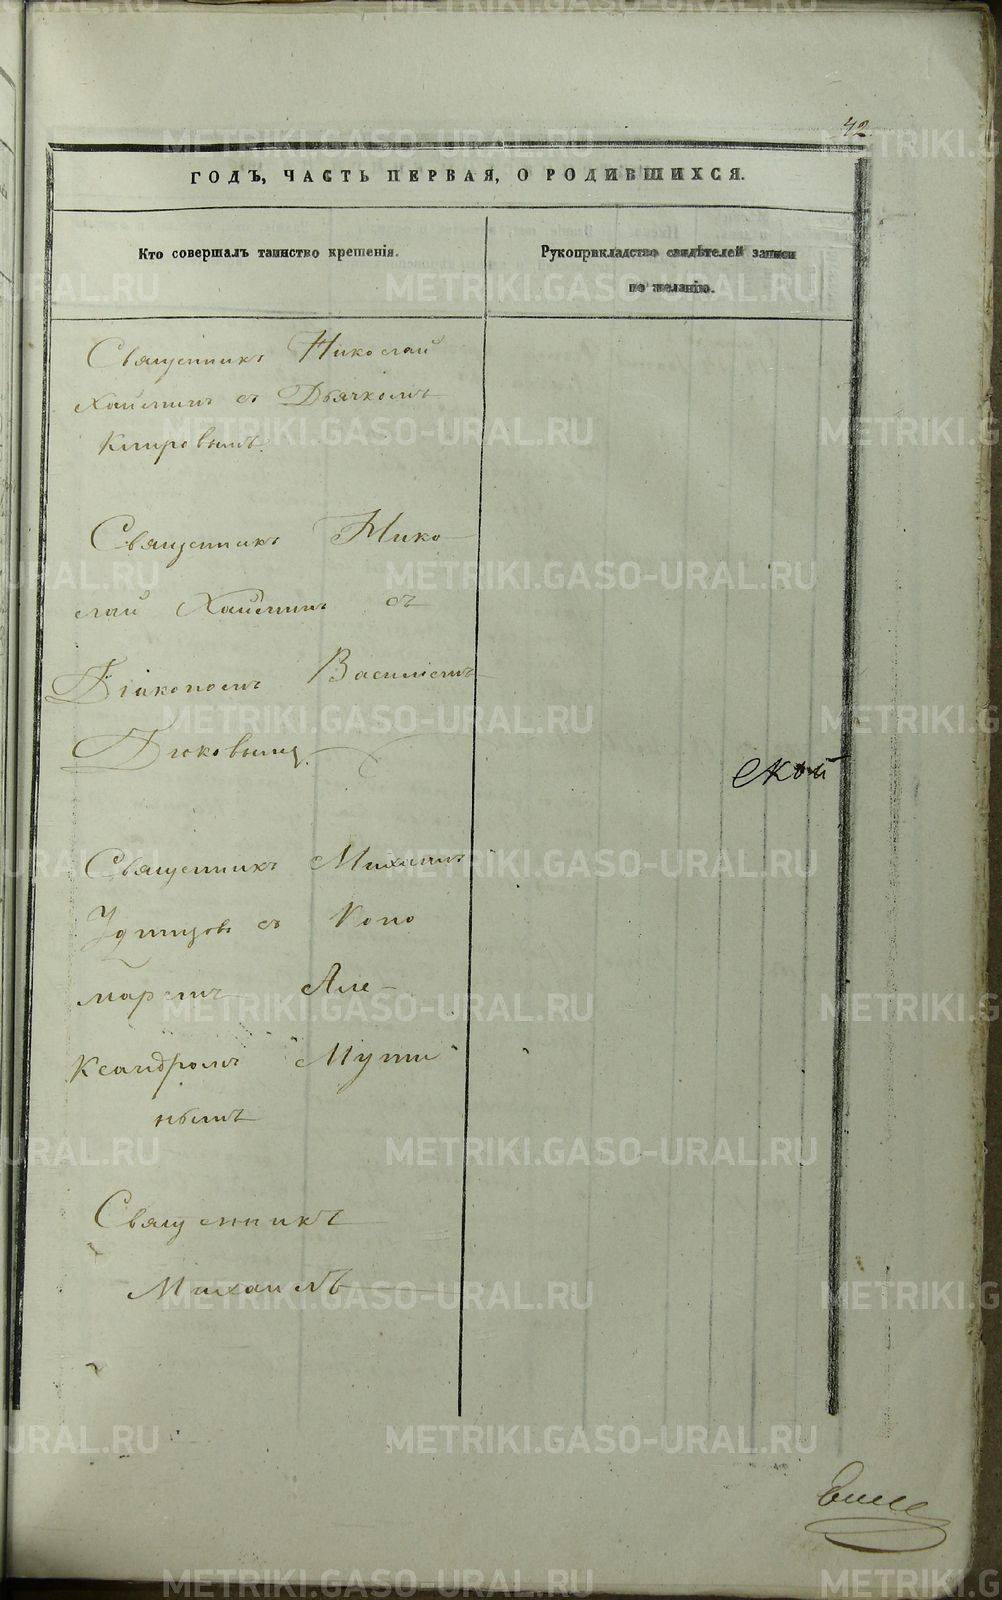 42
ГОДЪ, ЧАСТЬ ПЕРВАЯ, О РОДИВШИХСЯ.
Кто совершалъ таинство крещенія.
Рукоприкладство свидѣтелей записи
по желанію.
Священникъ Николай
съ Дьячкомъ
Священникъ Нико
лай съ
Діакономъ Василіемъ
ской
Священникъ Михаилъ
съ Поно
маремъ Але-
ксандромъ
нымъ
Священникъ
Михаилъ
METRIKI.GASO-URAL.RU